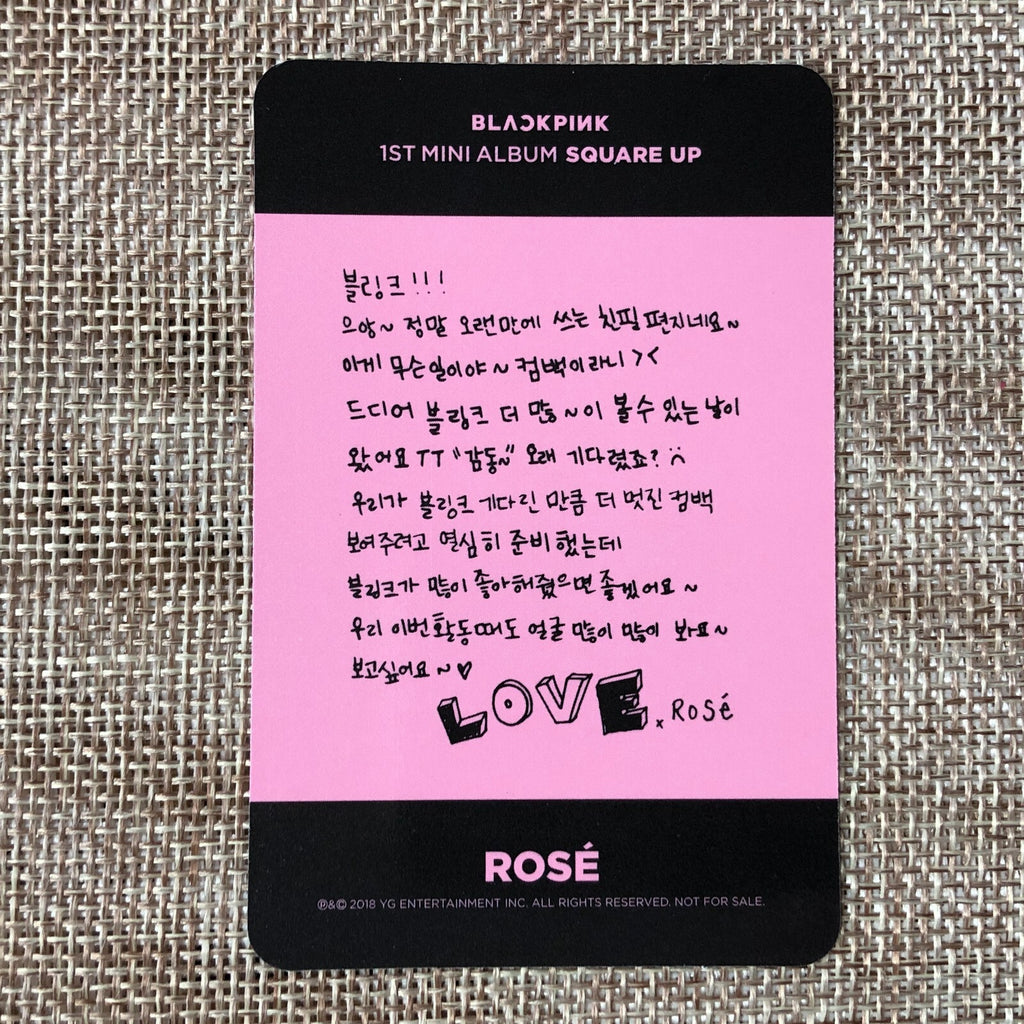 BLACKPINK
1ST MINI ALBUM SQUARE UP
블링크!!!
으앙~ 정말 오랜만에 쓰는 친필 편지네요~
이게 무슨일이야~ 컴백이라니 ><
드디어 블링크 더 많~이 볼 수 있는 날이
왔어요 TT "감동~" 오래 기다렸죠? :(
우리가 블링크 기다린 만큼 더 멋진 컴백
보여주려고 열심히 준비했는데
블링크가 많이 좋아해줬으면 좋겠어요~
우리 이번 활동때도 얼굴 많이 많이 봐요~
보고싶어요~♡
LOVE. x Rosé
ROSÉ
℗&© 2018 YG ENTERTAINMENT INC. ALL RIGHTS RESERVED. NOT FOR SALE.